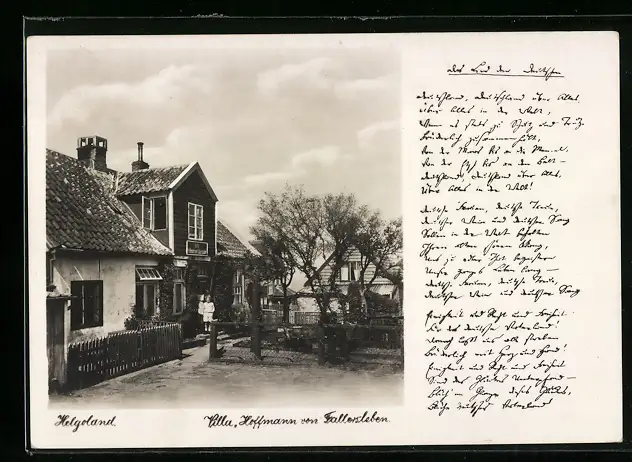 Das Lied der Deutschen
Deutschland, Deutschland über Alles,
über Alles in der Welt,
Wenn es stets zu Schutz und Trutz
Brüderlich zusammenhält,
Von der Maas bis an die Memel,
Von der Etsch bis an den Belt –
Deutschland, Deutschland über Alles,
Über Alles in der Welt!
Deutsche Frauen, deutsche Treue,
Deutscher Wein und deutscher Sang
Sollen in der Welt behalten
Ihren alten schönen Klang,
Uns zu edler That begeistern
Unser ganzes Leben lang –
Deutsche Frauen, deutsche Treue,
Deutscher Wein und deutscher Sang
Einigkeit und Recht und Freiheit
Für das deutsche Vaterland!
Danach laßt uns alle streben
Brüderlich mit Herz und Hand!
Einigkeit und Recht und Freiheit
Sind des Glückes Unterpfand –
Blüh' im Glanze dieses Glückes,
Blühe deutsches Vaterland!
Helgoland
Villa „Hoffmann von Fallersleben.